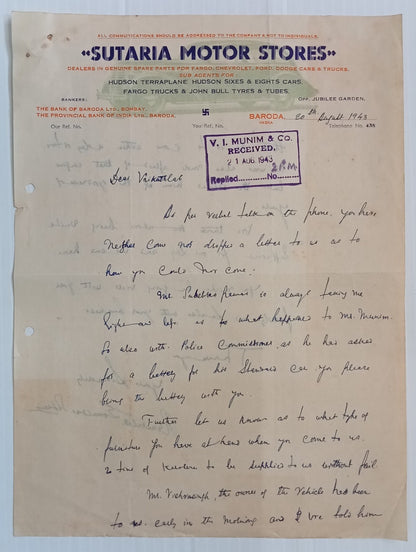 ALL COMMUNICATIONS SHOULD BE ADDRESSED TO THE COMPANY & NOT TO INDIVIDUALS.
"SUTARIA MOTOR STORES"
DEALERS IN GENUINE SPARE PARTS FOR FARGO, CHEVROLET, FORD, DODGE CARS & TRUCKS.
SUB AGENTS FOR:
HUDSON TERRAPLANE HUDSON SIXES & EIGHTS CARS.
FARGO TRUCKS & JOHN BULL TYRES & TUBES.
BANKERS:
OPP. JUBILEE GARDEN,
THE BANK OF BARODA LTD., BOMBAY.
THE PROVINCIAL BANK OF INDIA LTD., BARODA.
卐
BARODA, 20th August 1943
INDIA
Our Ref. No.
Your Ref. No.
Telephone No. 435
V. I. MUNIM & CO.
RECEIVED,
21 AUG. 1943
2 P.M.
Replied No.
Dear
As per verbal talk on the phone, you have
Neither come nor dropped a letter to us as to
how you could not come.
Mr. is always
as to what happened to Mr. Munim.
So also with Police Commissioner as he has asked
for a battery for his car you please
bring the battery with you.
Further let us known as to what type of
furniture you have at when you come to us.
2 tins of to be supplied to us without fail
Mr. the owner of the vehicle had been
to us early in the morning and I told him